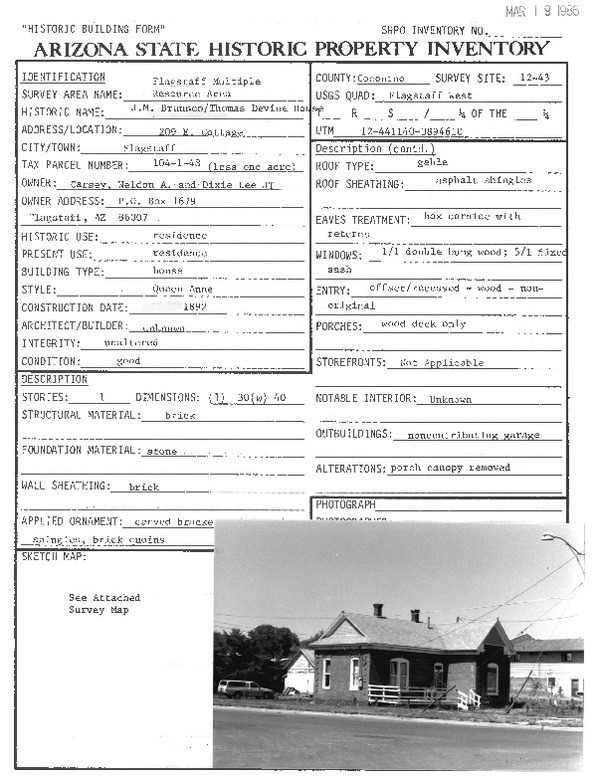 MAR 19 1986
"HISTORIC BUILDING FORM" SHPO INVENTORY NO.
ARIZONA STATE HISTORIC PROPERTY INVENTORY
IDENTIFICATION Flagstaff Multiple
SURVEY AREA NAME: Resource Area
HISTORIC NAME: J.M. Brannen/Thomas Devine House
ADDRESS/LOCATION: 209 E. Cottage
CITY/TOWN: Flagstaff
TAX PARCEL NUMBER: 104-1-43 (less one acre)
OWNER: Carsey, Weldon A. and Dixie Lee JT
OWNER ADDRESS: P.O. Box 1679
Flagstaff, AZ 86007
HISTORIC USE: residence
PRESENT USE: residence
BUILDING TYPE: house
STYLE: Queen Anne
CONSTRUCTION DATE: 1892
ARCHITECT/BUILDER: unknown
INTEGRITY: unaltered
CONDITION: good
DESCRIPTION
STORIES: 1 DIMENSIONS: (l) 30(w) 40
STRUCTURAL MATERIAL: brick
FOUNDATION MATERIAL: stone
WALL SHEATHING: brick
APPLIED ORNAMENT: carved
shingles, brick quoins
SKETCH MAP:
See Attached
Survey Map
COUNTY: Coconino SURVEY SITE: 12-43
USGS QUAD: Flagstaff West
T R S / ¼ OF THE ¼
UTM 12-441140-
Description (contd.)
ROOF TYPE: gable
ROOF SHEATHING: asphalt shingles
EAVES TREATMENT: box cornice with
returns
WINDOWS: 1/1 double hung wood; 5/1 fixed
sash
ENTRY: offset/recessed - wood - non-
original
PORCHES: wood deck only
STOREFRONTS: Not Applicable
NOTABLE INTERIOR: Unknown
OUTBUILDINGS: noncontributing garage
ALTERATIONS: porch canopy removed
PHOTOGRAPH